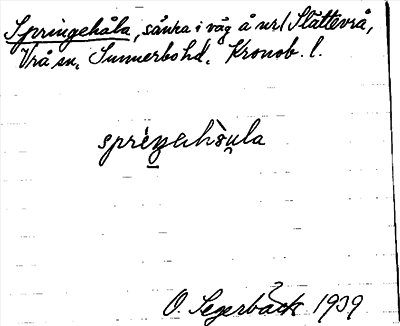 Springehåla, sänka i väg å nr 1 Slättevrå,
Vrå sn, Sunnerbo hd, Kronob. l.
O. Segerbäck 1939